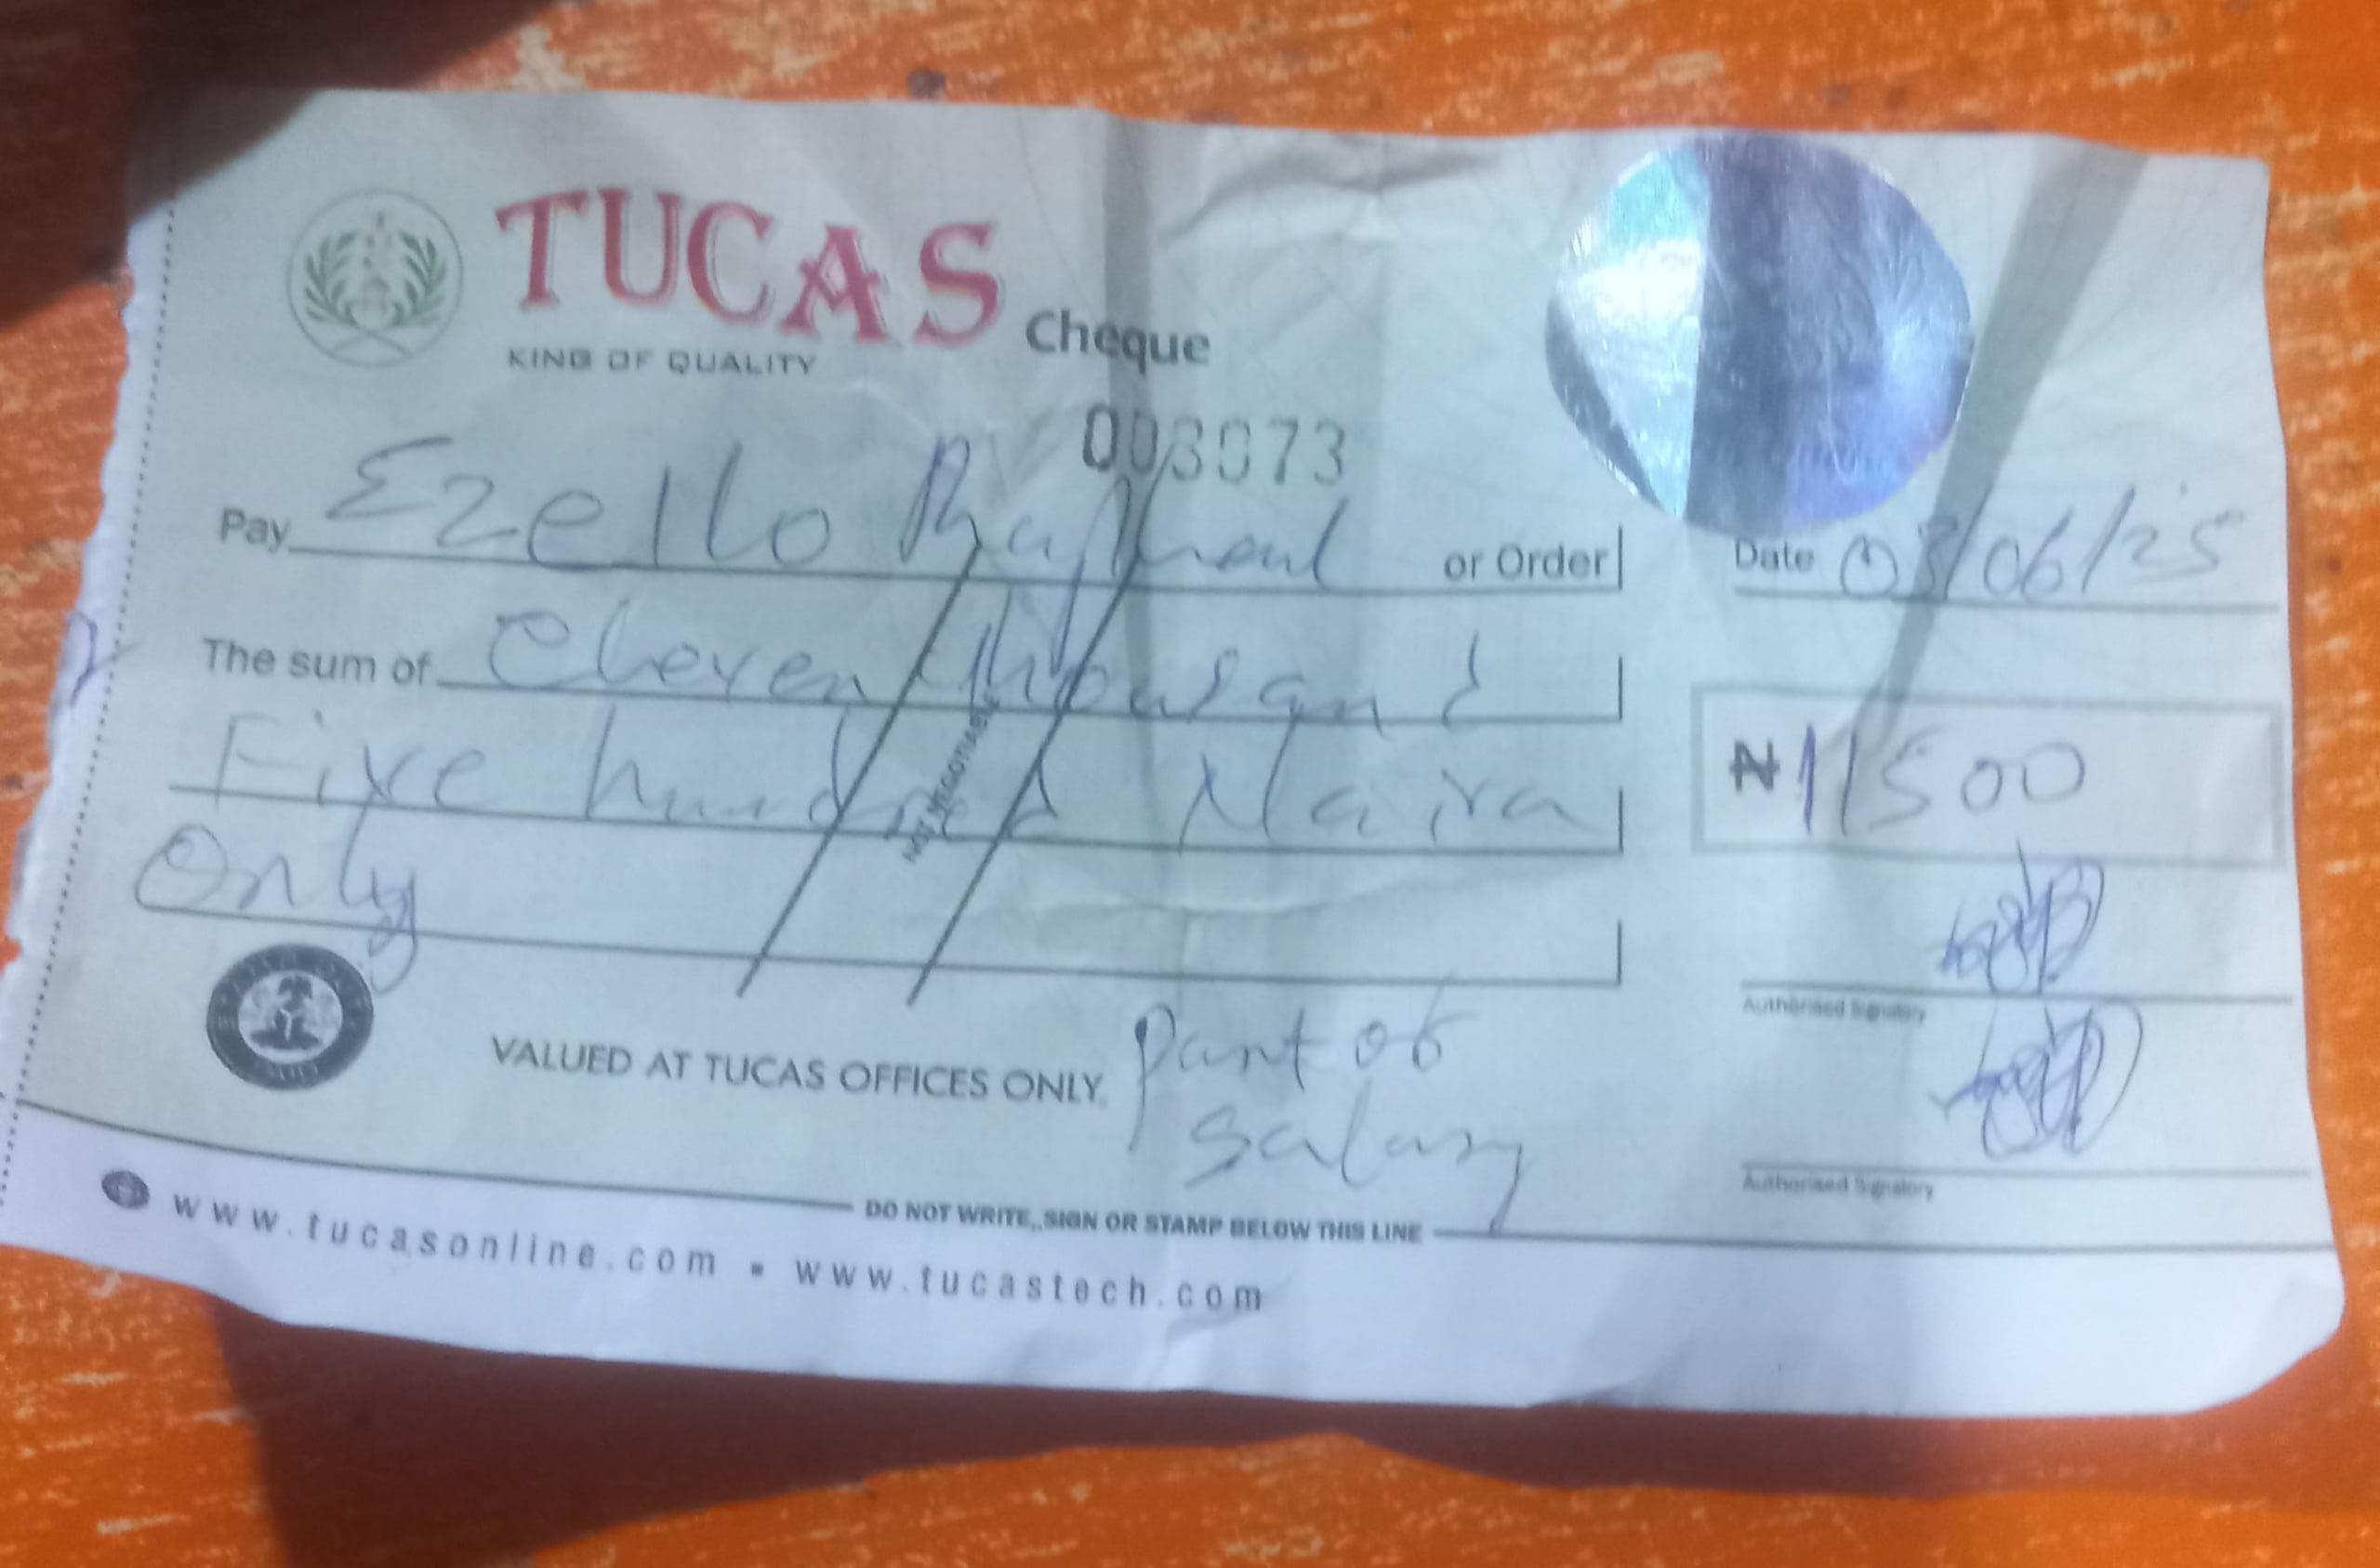 TUCAS
KING OF QUALITY
Cheque
003073
Pay Ezello Raphael or Order
Date 03/06/25
The sum of Eleven thousand
Five hundred Naira
Only
₦11500
NOT NEGOTIABLE
Authorised Signatory
VALUED AT TUCAS OFFICES ONLY.
Part of
Salary
Authorised Signatory
DO NOT WRITE, SIGN OR STAMP BELOW THIS LINE
www.tucasonline.com ▪ www.tucastech.com